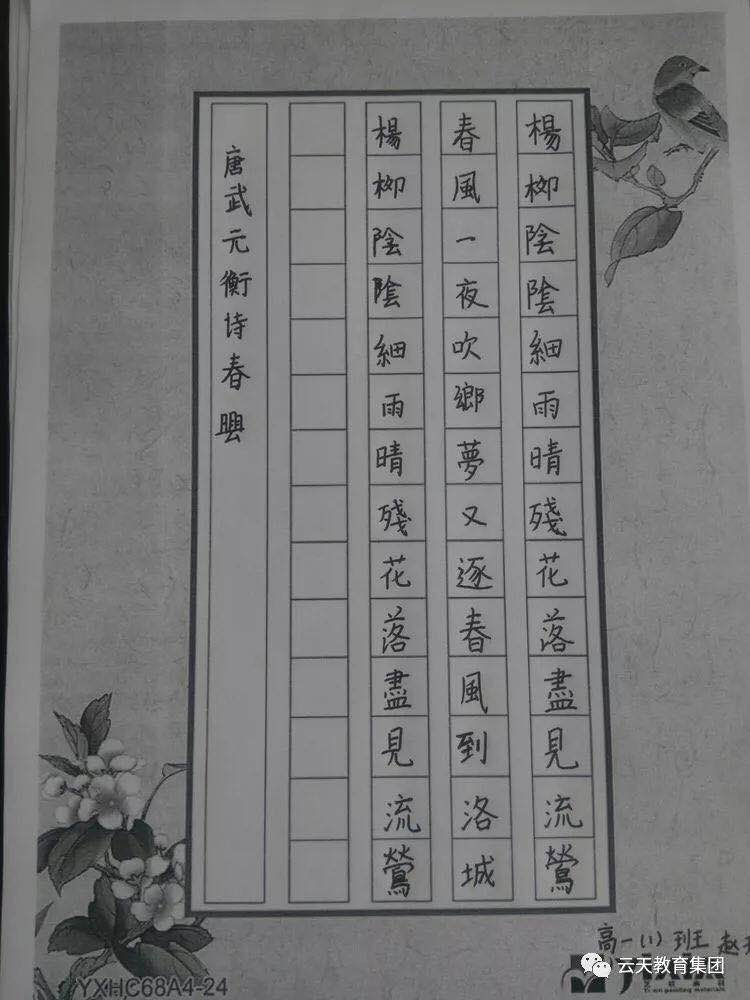 楊柳陰陰細雨晴殘花落盡見流鶯
春風一夜吹鄉夢又逐春風到洛城
楊柳陰陰細雨晴殘花落盡見流鶯
唐武元衡诗春興
高一(1)班 赵
云天教育集团
YXHC68A4-24